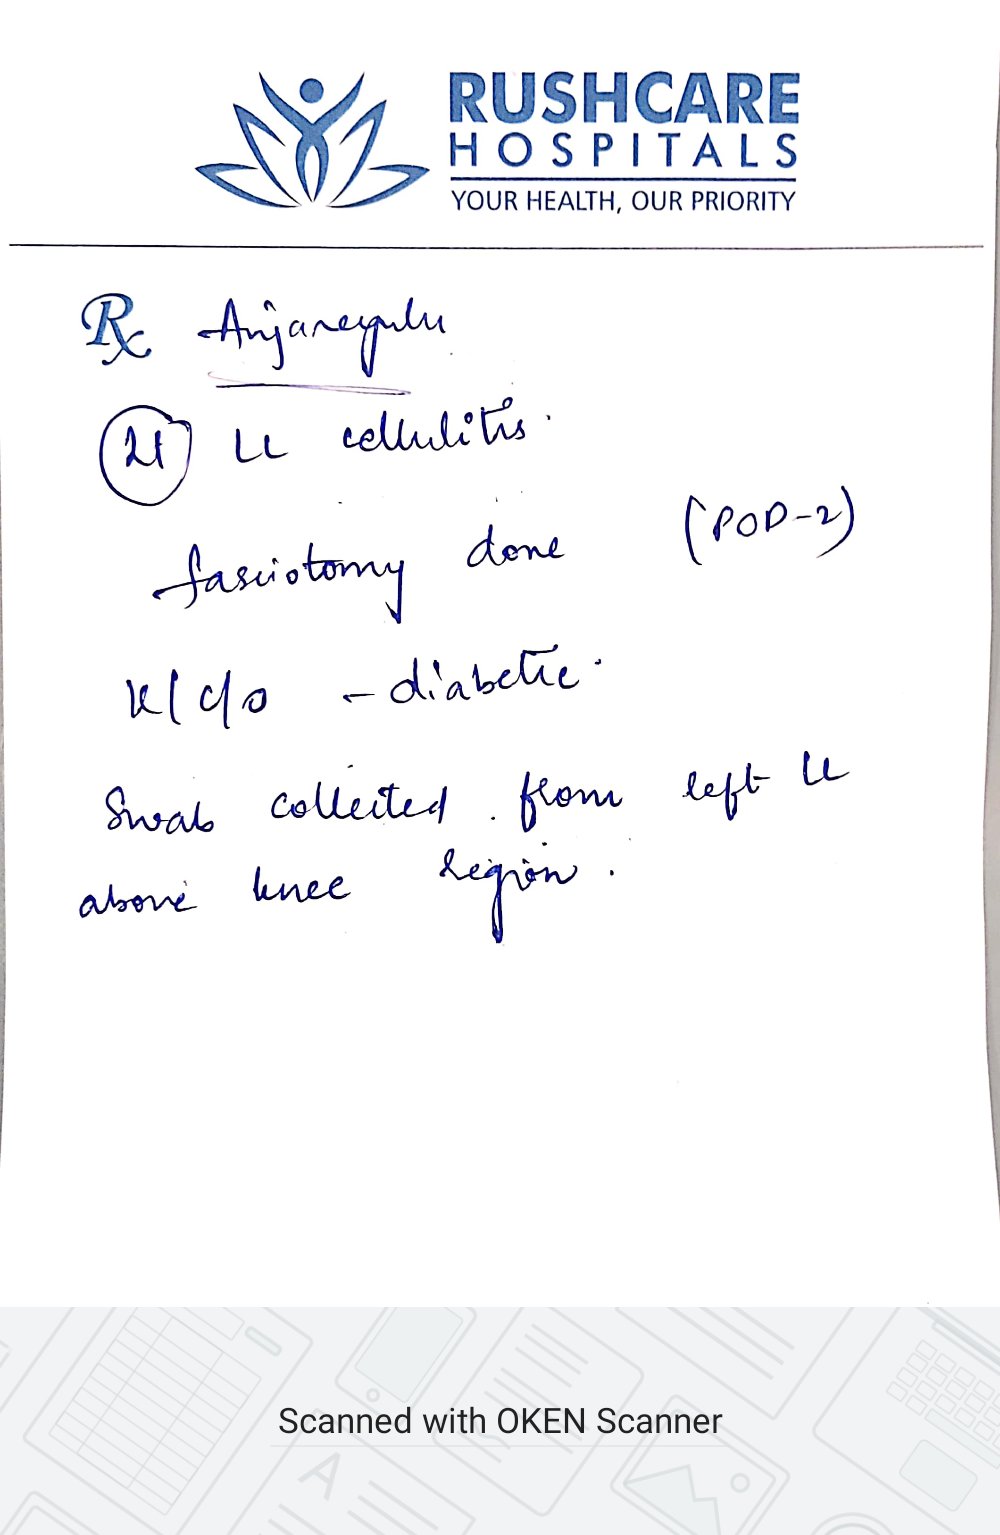 RUSHCARE
HOSPITALS
YOUR HEALTH, OUR PRIORITY
Rx Anjaneyulu
LL cellulitis.
fasciotomy done (POD-2)
K/c/o - diabetic.
Swab collected from left LL
above knee region.
Scanned with OKEN Scanner